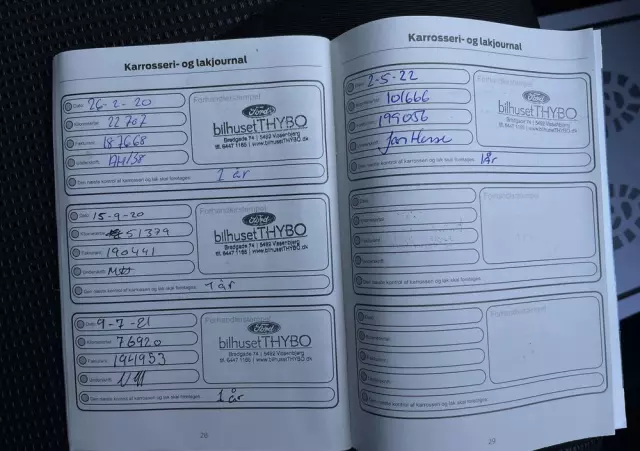 Karrosseri- og lakjournal
Dato: 26-2-20
Forhandlerstempel
Kilometertal: 22707
Ford
Fakturanr. 187668
bilhusetTHYBO
Bredgade 74 | 5492 Vissenbjerg
tlf. 6447 1165 | www.bilhusetTHYBO.dk
Underskrift:
Den næste kontrol af karrosseri og lak skal foretages: 1 år
Dato: 15-9-20
Forhandlerstempel
Kilometertal: 51379
Ford
Fakturanr. 190441
bilhusetTHYBO
Bredgade 74 | 5492 Vissenbjerg
tlf. 6447 1165 | www.bilhusetTHYBO.dk
Underskrift:
Den næste kontrol af karrosseri og lak skal foretages: 1 år
Dato: 9-7-21
Forhandlerstempel
Kilometertal: 76920
Ford
Fakturanr. 194953
bilhusetTHYBO
Bredgade 74 | 5492 Vissenbjerg
tlf. 6447 1165 | www.bilhusetTHYBO.dk
Underskrift:
Den næste kontrol af karrosseri og lak skal foretages: 1 år
28
Karrosseri- og lakjournal
Dato: 2-5-22
Forhandlerstempel
Kilometertal: 101666
Ford
Fakturanr. 199056
bilhusetTHYBO
Bredgade 74 | 5492 Vissenbjerg
tlf. 6447 1165 | www.bilhusetTHYBO.dk
Underskrift:
Den næste kontrol af karrosseri og lak skal foretages: 1år
Dato:
Forhandlerstempel
Kilometertal:
Fakturanr.
Underskrift:
Den næste kontrol af karrosseri og lak skal foretages:
Dato:
Forhandlerstempel
Kilometertal:
Fakturanr.
Underskrift:
Den næste kontrol af karrosseri og lak skal foretages:
29